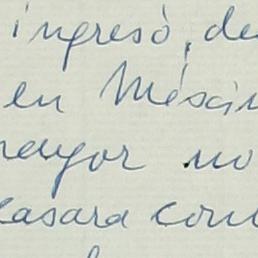 ingresó, de
en Méxi
mayor no
casara con